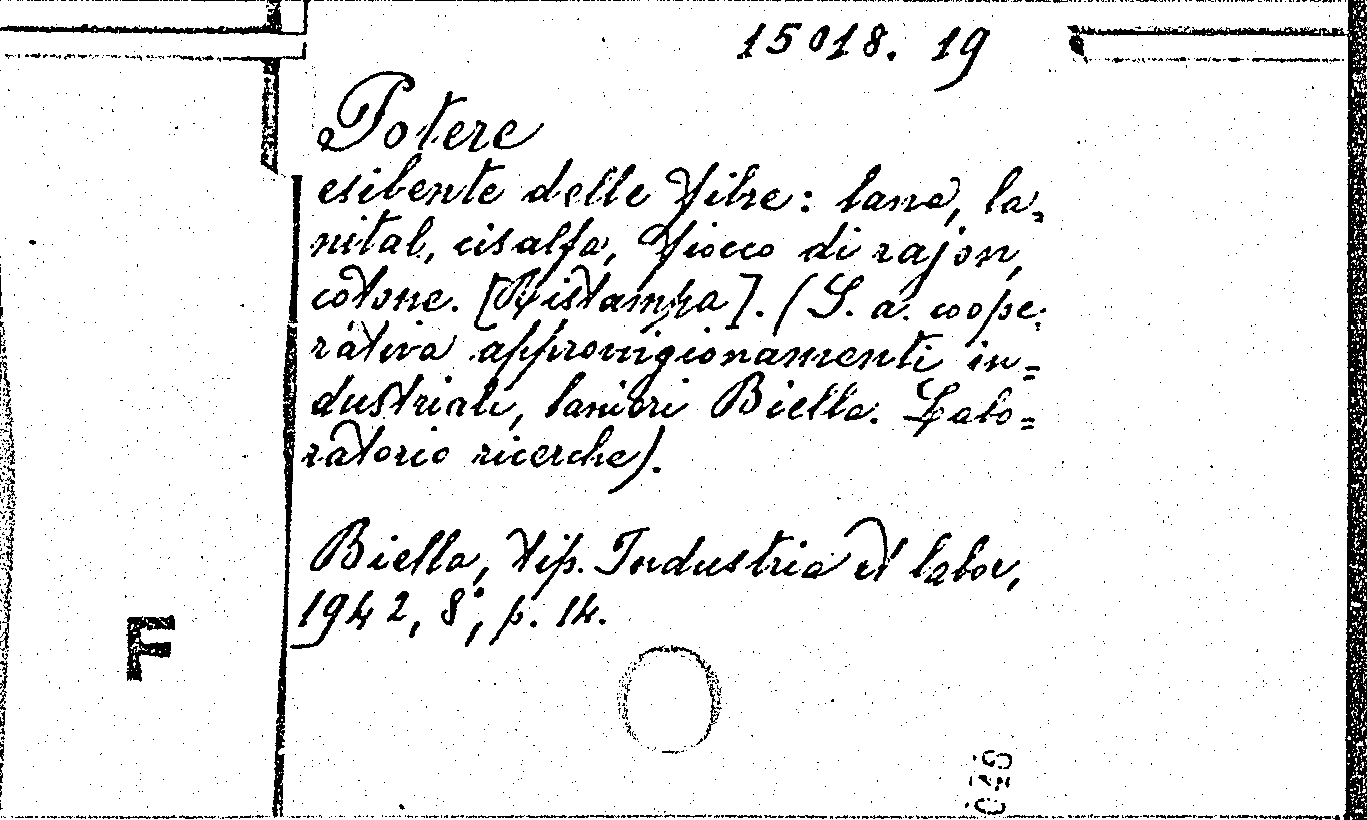 15018. 19
Potere
esibente delle fibre: lana, la=
nital, cisalfa, fiocco di rajon,
cotone. [Ristampa]. (S. a. coope=
rativa approvigionamenti in=
dustriali, lanieri Biella. Labo=
ratorio ricerche).
Biella, tip. Industria et labor,
1942, 8°, p. 14.
F